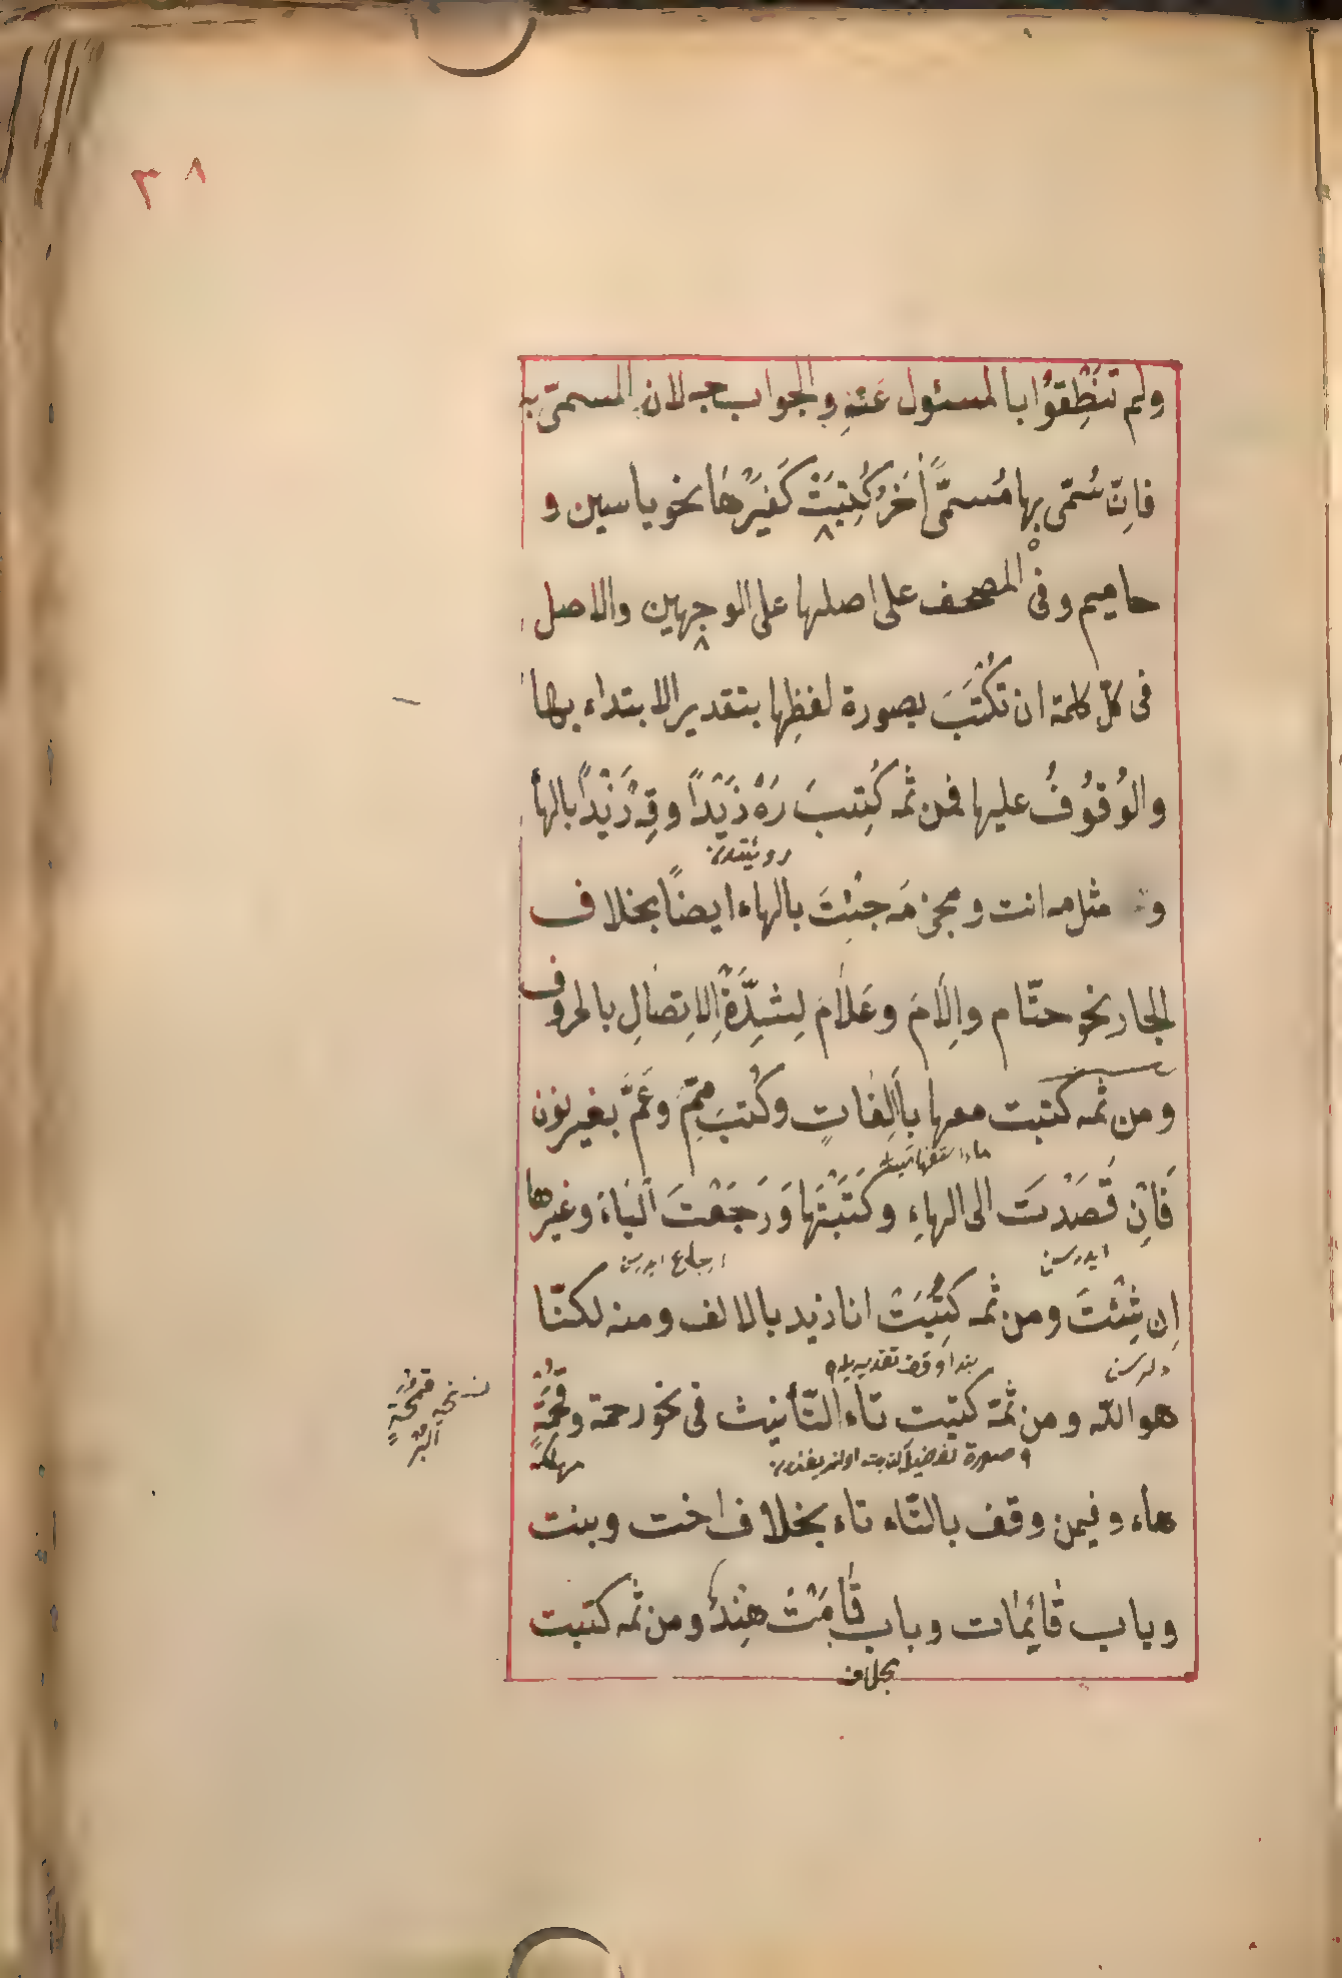 ٣٨
ولم تنطِقوُا بالمسئول عَنهِ والجواب جه لانه المسمّى به
فاِنّ سُمّى بها مُسمًّى اٰخَرُ كُتِبَتْ كَغَيْرِهَا نحو ياسين و
حاميم وفى المصحف على اصلها على الوجهين والاصل
فى كلّ كلمة ان تُكْتَبَ بصورة لفظِها بتقدير الابتداء بها
والوُقوُفُ عليها فمن ثمه كُتِبَ رَهْ زَيْدًا وقِهْ زَيْدًا بالهأ
و مثل مه انت ومجئ مَه جئِتَ بالهاء ايضًا بخلاف
الجار نحو حتّام واِلَامَ وعَلَامَ لِشِدَّةِ الاِتصالِ بالحروف
ومن ثمه كتبت معها باَلِفاتٍ وكُتبَ مِمَّ وعَمَّ بغير نون
فَاِنْ قَصَدْتَ الى الهاءِ وكَتَبْتَها وَرَجَعْتَ اليَاءَ وغيرها
ايدرسن
ارجاع ايدرسن
اِن شِئْتَ ومن ثمه كتِبَتْ انا زيد بالالف ومنه لكنّا
هو اللّه ومن ثمّة كتبت تاء التّأنيث فى نحو رحمة وقمحَةٍ
هاء وفيمن وقف بالتّاء تاء بخلاف اخت وبنت
وباب قائِمات وباب قَامَتْ هِنْدٌ ومن ثمه كتبت
بخلاف